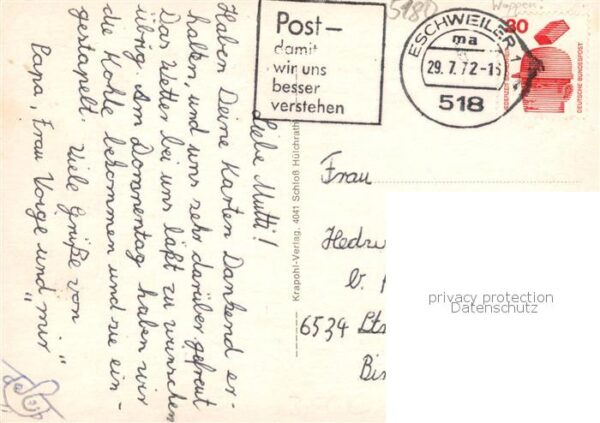 Liebe Mutti!
Haben Deine Karten Dankend er-
halten, und uns sehr darüber gefreut
Das Wetter bei uns läßt zu wünschen
übrig. Am Donnerstag haben wir
die Kohle bekommen und sie ein-
gestapelt. Viele Grüße von
Papa, Frau Vorge und „mir“
Krapohl-Verlag, 4041 Schloß Hülchrath
Post–
damit
wir uns
besser
verstehen
5180
Wappen
ESCHWEILER 1
ma
29.7.72-15
518
30
DEUTSCHE BUNDESPOST
Frau
6534
privacy protection
Datenschutz